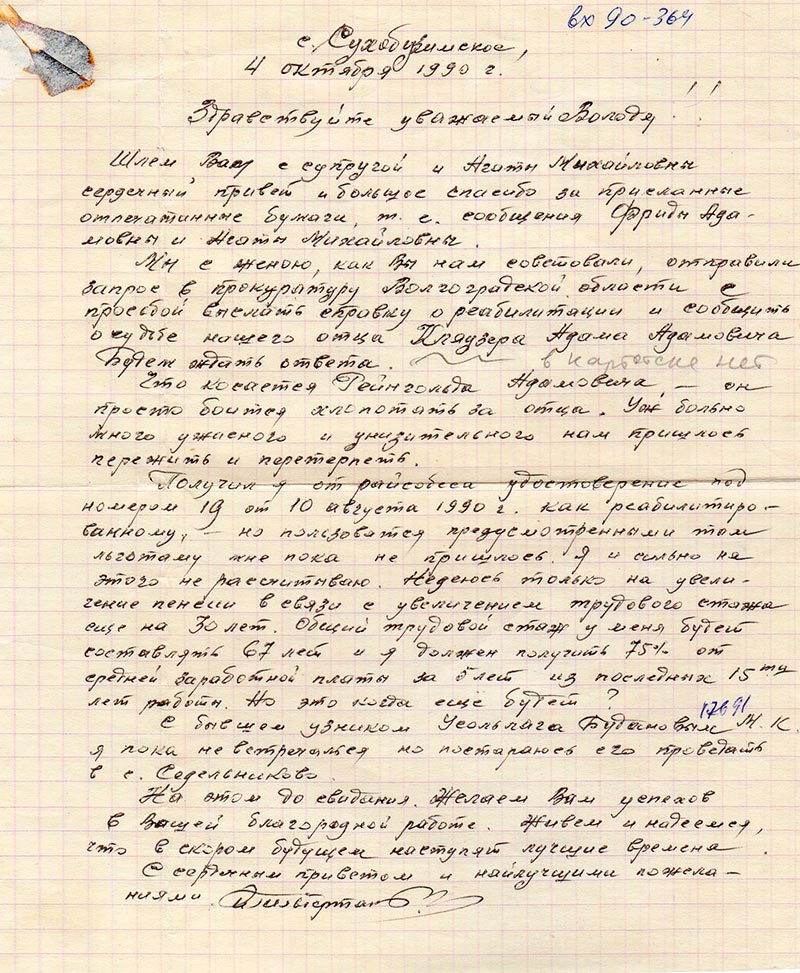 вх 90-364
с. Сухобузимское,
4 октября 1990 г.
Здравствуйте уважаемый Володя!!
Шлем Вам с супругой и Агаты Михайловны
сердечный привет и большое спасибо за присланные
отпекатинные бумаги, т. е. сообщения Фриды Ада-
мовны и Агаты Михайловны.
Мы с женою, как Вы нам советовали, отправили
запрос в прокуратуру Волгоградской области с
просьбой выслать справку о реабилитации и сообщить
о судьбе нашего отца Адама Адамовича
Будем ждать ответа. в картотеке нет
Что касается Рейнгольда Адамовича, – он
просто боится хлопотать за отца. Уж больно
много ужасного и унизительного нам пришлось
пережить и перетерпеть.
Получил я от райсобеса удостоверение под
номером 19 от 10 августа 1990 г. как реабилитиро-
ванному, – но пользоватся предусмотренными там
льготаму мне пока не пришлось. Я и сильно на
этого не рассчитываю. Недеюсь только на увели-
чение пенсии в связи с увеличением трудового стажа
еще на 30 лет. Общий трудовой стаж у меня будет
составлять 67 лет и я должен получить 75% от
средней заработной платы за 5 лет из последных 15ти
лет работы. Но это когда еще будет?
17691
С бывшем узником Усольлага Будановым М. К.
я пока не встречалься но постараюсь его проведать
в с. Седельниково.
На этом до свидания. Желаем Вам успехов
в Вашей благородной работе. Живем и надеемся,
что в скором будущем наступят лучшие времена.
С сердечным приветом и найлучшими пожела-
ниями.